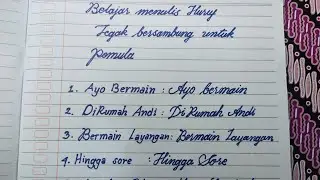 Belajar menulis Huruf
Tegak bersambung untuk
pemula
1. Ayo Bermain : Ayo bermain
2. DiRumah Andi : Di Rumah Andi
3. Bermain Layangan: Bermain Layangan
4. Hingga sore : Hingga Sore